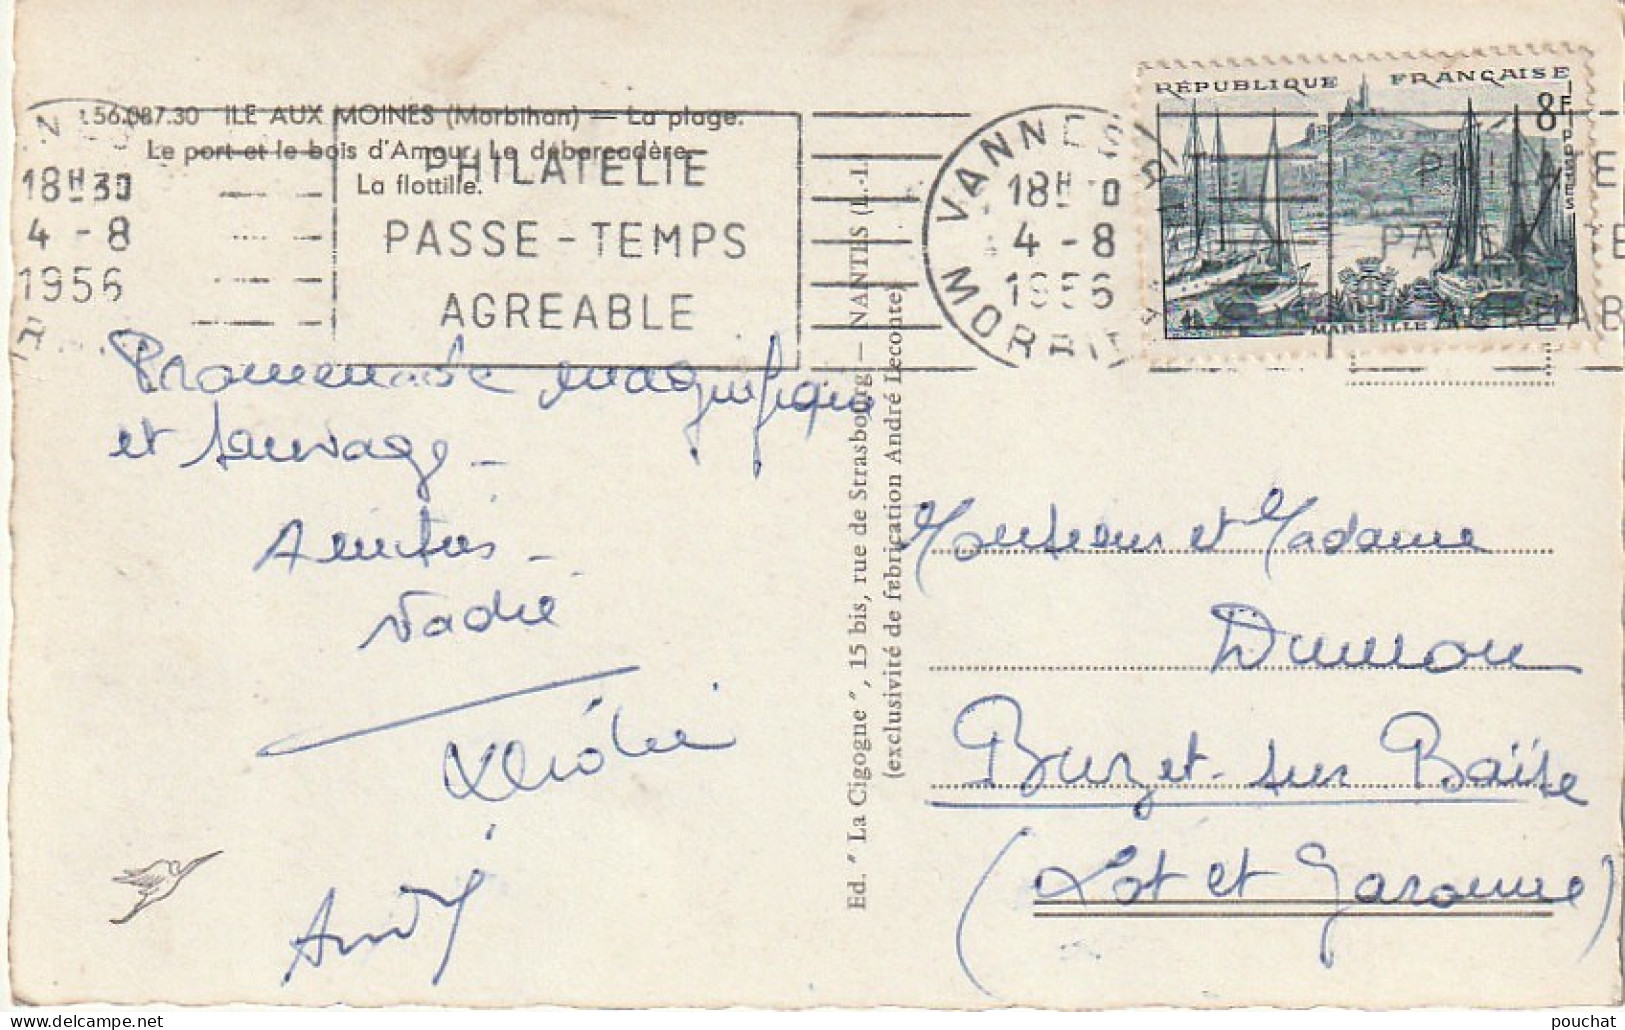 .56.087.30 ILE AUX MOINES (Morbihan) — La plage.
Le port et le bois d'Amour. Le débarcadère.
La flottille.
18H30
4 - 8
1956
PHILATELIE
PASSE-TEMPS
AGREABLE
VANNES
18H30
4 - 8
1956
MORBIHAN
RÉPUBLIQUE FRANÇAISE
8F
POSTES
MARSEILLE
Promenade magnifique
et sauvage -
Amitiés -
André
Ed. "La Cigogne", 15 bis, rue de Strasbourg — NANTES (L.-I.)
(exclusivité de fabrication André Leconte)
Monsieur et Madame
Dumon
Buzet-sur Baïse
(Lot et Garonne)
pouchat